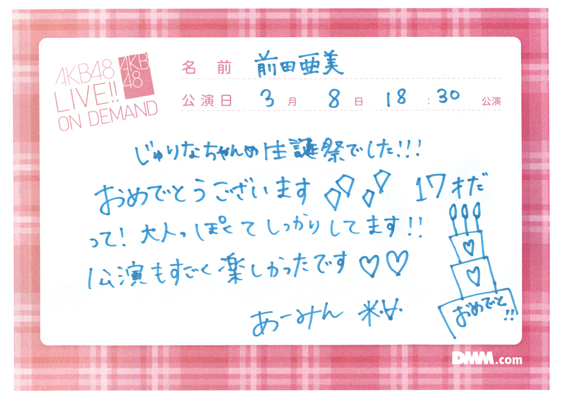 AKB48
LIVE!!
ON DEMAND
AKB
48
名 前 前田亜美
公演日 3月 8日 18:30 公演
じゅりなちゃんの生誕祭でした!!!
おめでとうございます 17才だ
って! 大人っぽくてしっかりしてます!!
公演もすごく楽しかったです♡♡
あーみん
おめでと!!
DMM.com